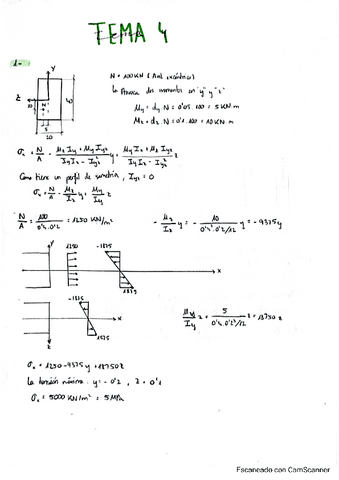 TEMA 4
1-
Y
N = 100KN
La fuerza
momentos en "y" y "z"
z
N
40
My = dz·N = 0'05·100 = 5 KN·m
Mz = dy·N = 0'1·100 = 10 KN·m
5
20
σx = N/A - (Mz Iy + My Iyz)/(Iy Iz - Iyz²) y + (My Iz + Mz Iyz)/(Iy Iz - Iyz²) z
Como tiene un perfil de simetría, Iyz = 0
σx = N/A - Mz/Iz y + My/Iy z
N/A = 100/(0'4·0'2) = 1250 KN/m²
- Mz/Iz y = - 10/(0'4³·0'2/12) y = -9375y
Y
1250
-1875
x
1875
-1875
x
1875
z
My/Iy z = 5/(0'4·0'2³/12) z = 18750 z
σx = 1250 - 9375y + 18750z
La tensión máxima: y = -0'2, z = 0'1
σx = 5000 KN/m² = 5 MPa
Escaneado con CamScanner